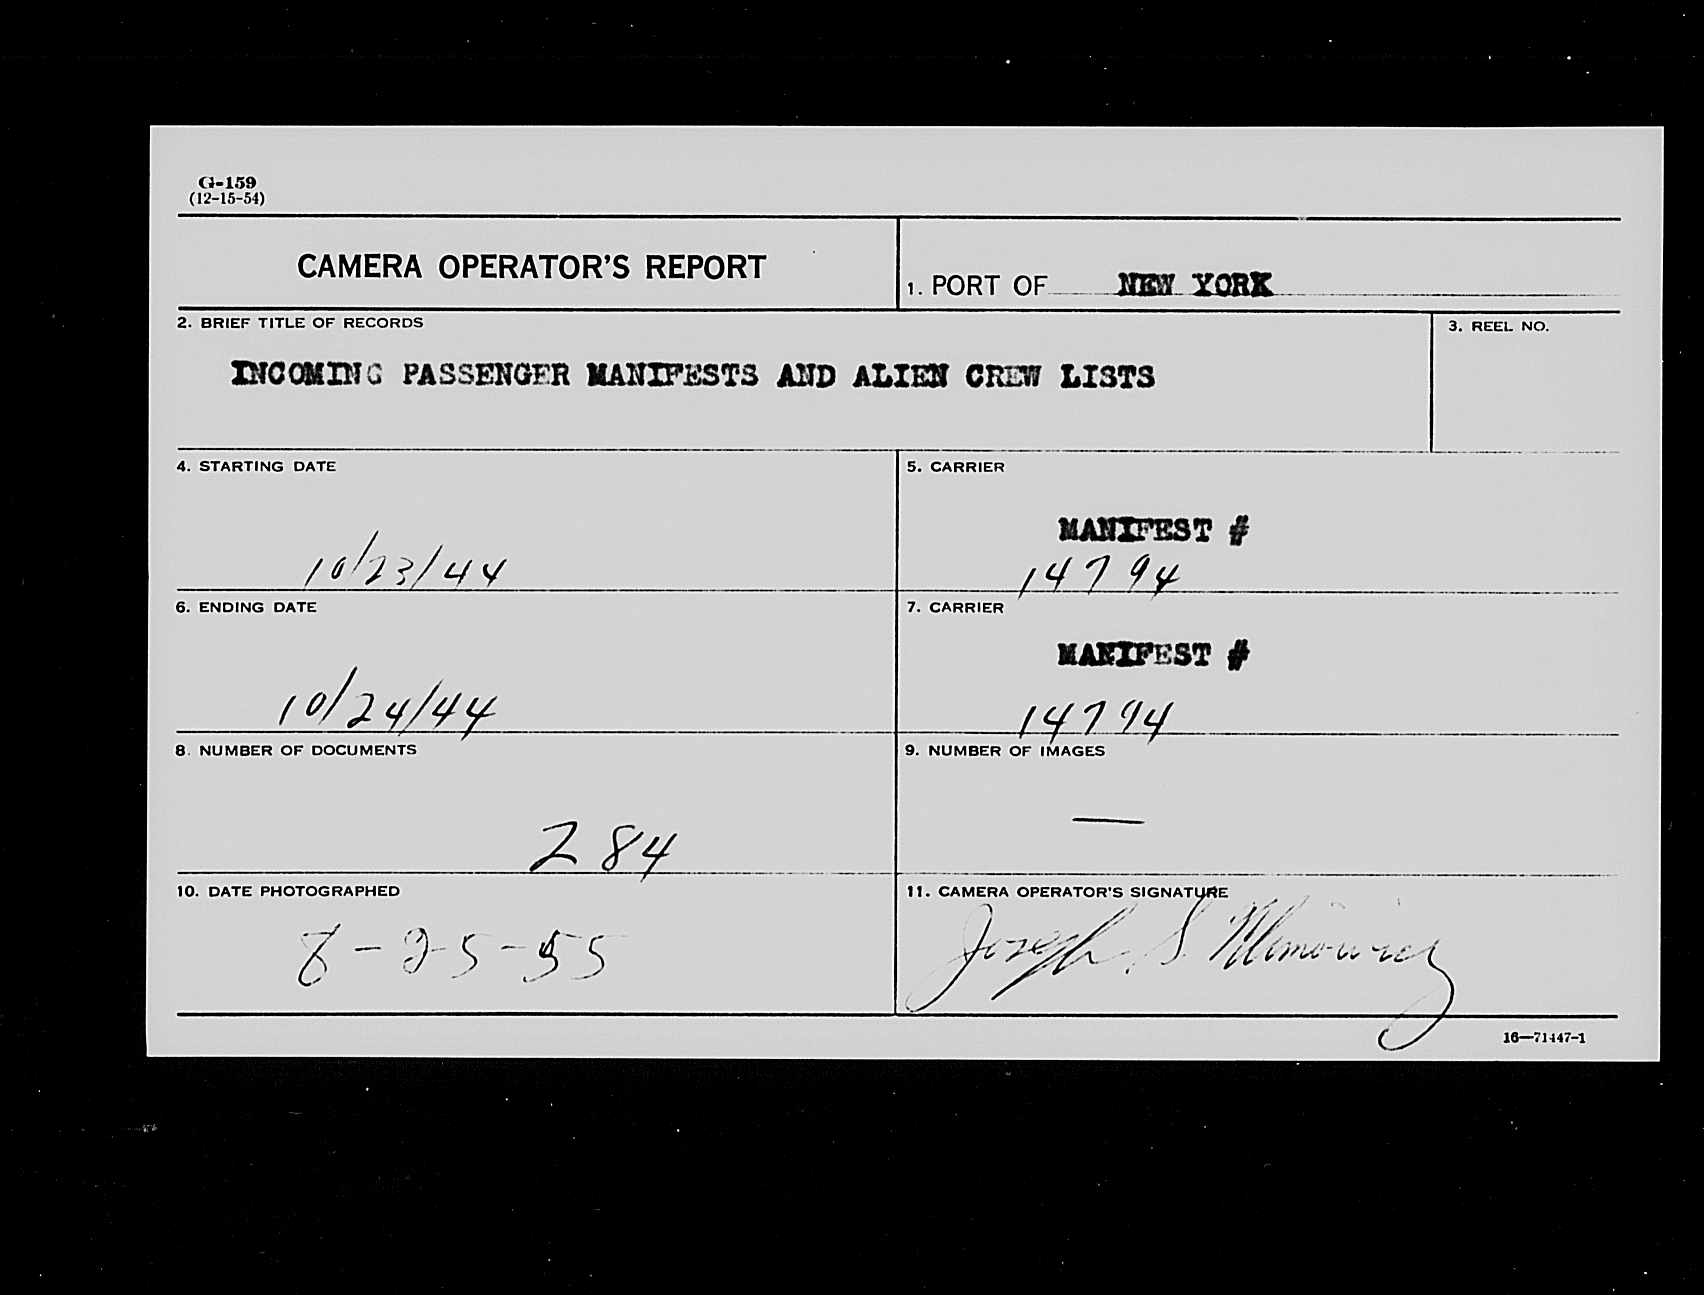 G-159
(12-15-54)
CAMERA OPERATOR'S REPORT
1. PORT OF NEW YORK
2. BRIEF TITLE OF RECORDS
3. REEL NO.
INCOMING PASSENGER MANIFESTS AND ALIEN CREW LISTS
4. STARTING DATE
10/23/44
5. CARRIER
MANIFEST #
14794
6. ENDING DATE
10/24/44
7. CARRIER
MANIFEST #
14794
8. NUMBER OF DOCUMENTS
284
9. NUMBER OF IMAGES
—
10. DATE PHOTOGRAPHED
8-25-55
11. CAMERA OPERATOR'S SIGNATURE
Joseph S.
16—71447-1